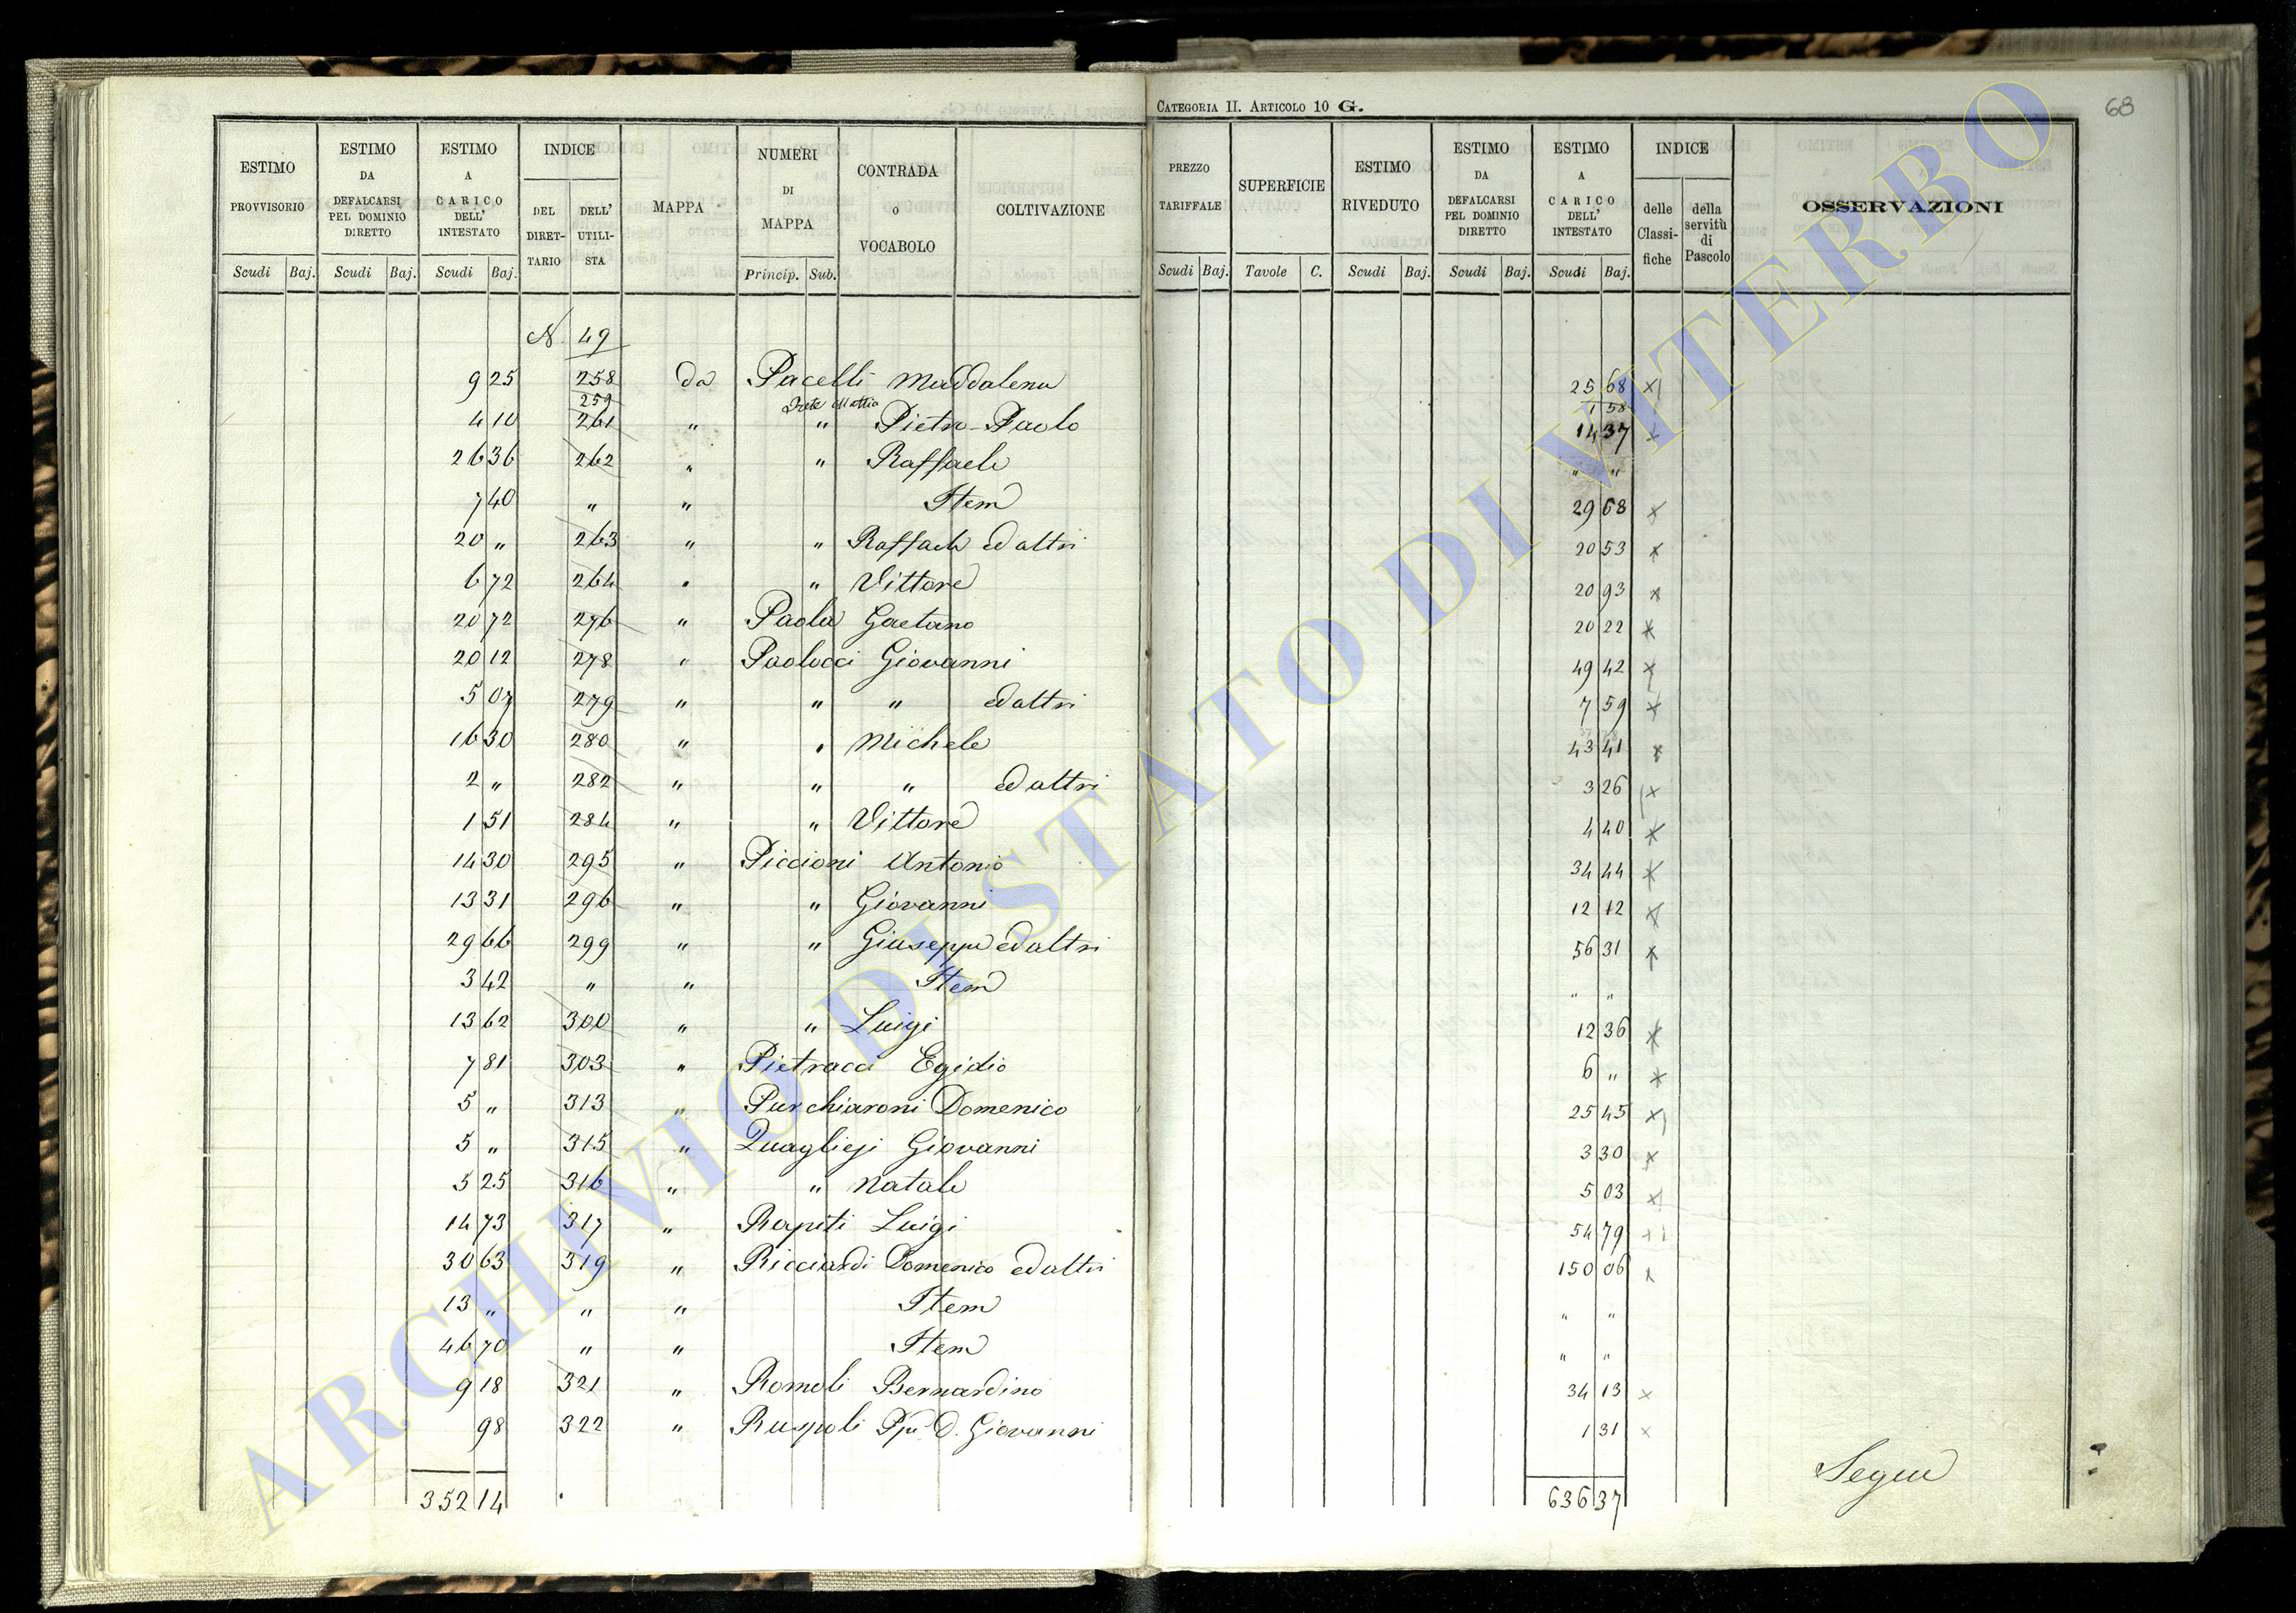 CATEGORIA II. ARTICOLO 10 G.
68
ESTIMO PROVVISORIO Scudi Baj.
ESTIMO DA DEFALCARSI PEL DOMINIO DIRETTO Scudi Baj.
ESTIMO A CARICO DELL' INTESTATO Scudi Baj.
INDICE DEL DIRETTARIO DELL' UTILISTA
MAPPA
NUMERI DI MAPPA Princip. Sub.
CONTRADA o VOCABOLO
COLTIVAZIONE
PREZZO TARIFFALE Scudi Baj.
SUPERFICIE Tavole C.
ESTIMO RIVEDUTO Scudi Baj.
ESTIMO DA DEFALCARSI PEL DOMINIO DIRETTO Scudi Baj.
ESTIMO A CARICO DELL' INTESTATO Scudi Baj.
INDICE delle Classifiche della servitù di Pascolo
OSSERVAZIONI
N. 49
9 25 258 Da Pacelli Maddalena 25 68 x
259 Mattia 1 58
4 10 261 " " Pietro-Paolo 14 37 x
26 36 262 " " Raffaele " "
7 40 " " Item 29 68 x
20 " 263 " " Raffaele ed altri 20 53 x
6 72 264 " " Vittore 20 93 x
20 72 276 " Paola Gaetano 20 22 x
20 12 278 " Paolucci Giovanni 49 42 x
5 07 279 " " " ed altri 7 59 x
16 30 280 " " Michele 43 41 x
2 " 282 " " " ed altri 3 26 x
1 51 284 " " Vittore 4 40 x
14 30 295 " Piccioni Antonio 34 44 x
13 31 296 " " Giovanni 12 12 x
29 66 299 " " Giuseppe ed altri 56 31 x
3 42 " " Item " "
13 62 300 " " Luigi 12 36 x
7 81 303 " Pietracci Egidio 6 " x
5 " 313 " Purchiaroni Domenico 25 45 x
5 " 315 " Quaglieji Giovanni 3 30 x
5 25 316 " " Natale 5 03 x
14 73 317 " Rapiti Luigi 54 79 x
30 63 319 " Ricciardi Domenico ed altri 150 06 x
13 " " " Item " "
46 70 " " Item " "
9 18 321 " Romoli Bernardino 34 13 x
98 322 " Ruspoli D. Giovanni 1 31 x
352 14 636 37
Segue
ARCHIVIO DI STATO DI VITERBO